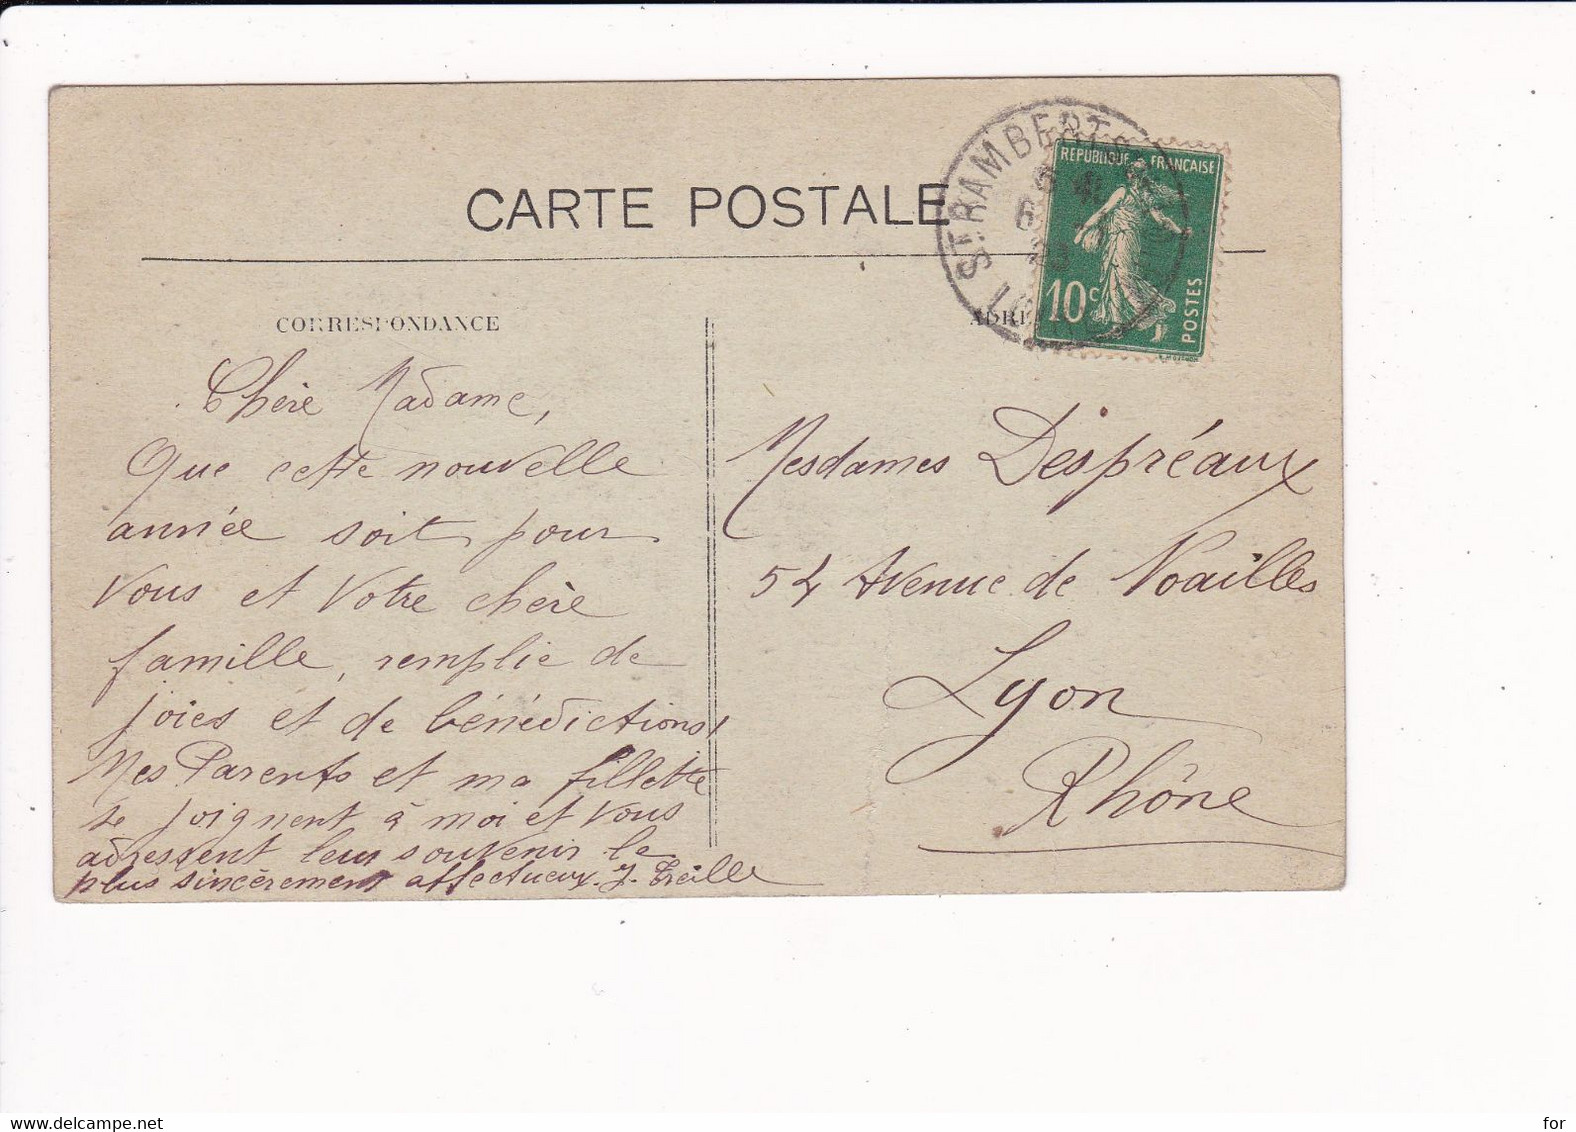 CARTE POSTALE
CORRESPONDANCE
Chère Madame,
Que cette nouvelle
année soit pour
Vous et Votre chère
famille, remplie de
joies et de bénédictions!
Mes Parents et ma fillette
se joignent à moi et vous
adressent leur souvenir le
plus sincèrement affectueux. J. Treille
ST RAMBERT
REPUBLIQUE FRANÇAISE
10c
POSTES
Mesdames Despréaux
54 Avenue de Noailles
Lyon
Rhône
for